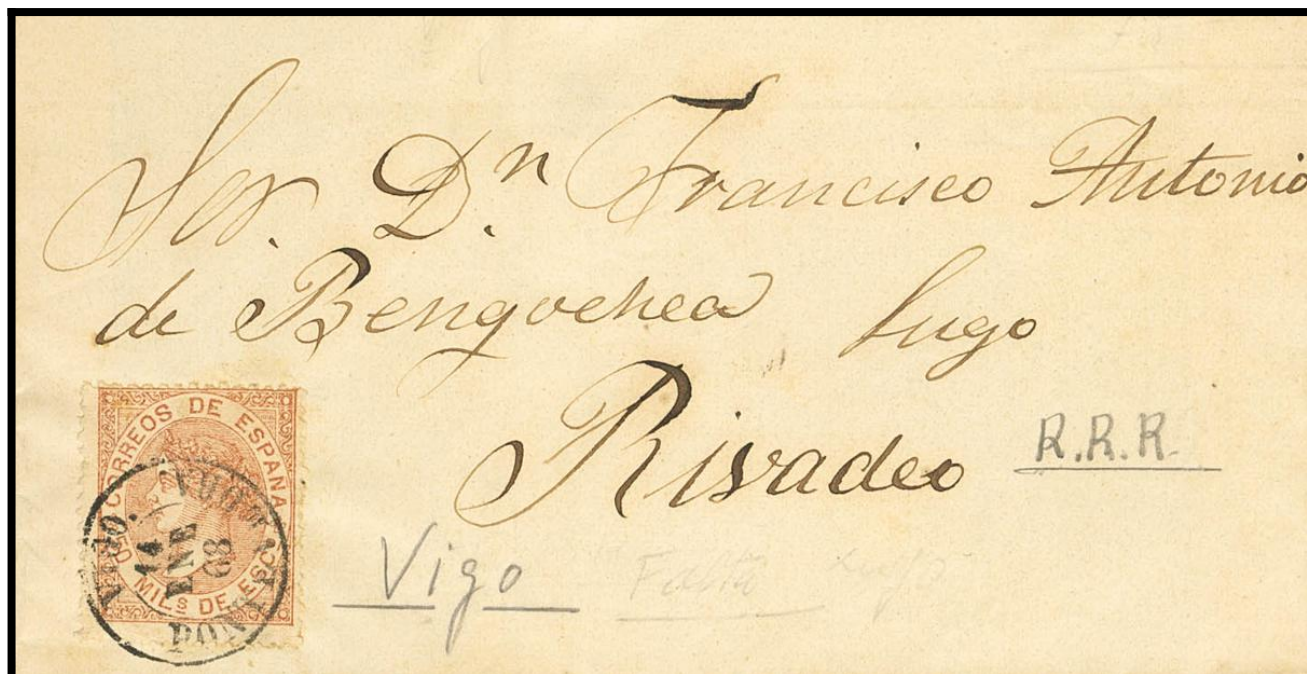 Sor. Dn Francisco Antonio
de Bengoehea Lugo
Rivadeo
R.R.R.
CORREOS DE ESPAÑA
MILS DE ESCO
VIGO.
14
ENE
68
Vigo
Falta